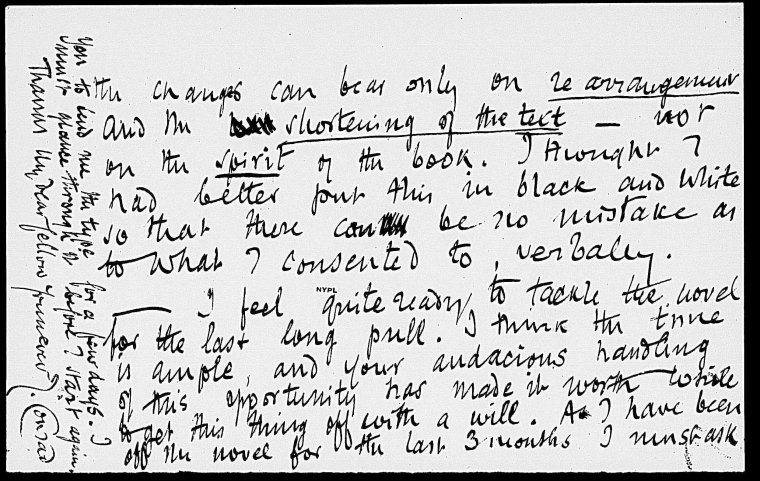 The changes can bear only on rearrangement
and the shortening of the text — not
on the spirit of the book. I thought I
had better put this in black and white
so that there can be no mistake as
to what I consented to, verbally.
— I feel quite ready to tackle the novel
NYPL
for the last long pull. I think the time
is ample, and your audacious handling
of this opportunity has made it worth while
to get this thing off with a will. As I have been
off the novel for the last 3 months I must ask
you to lend me the type for a few days. I
must glance through it before I start again.
Thanks my dear fellow. Yours ever J. Conrad